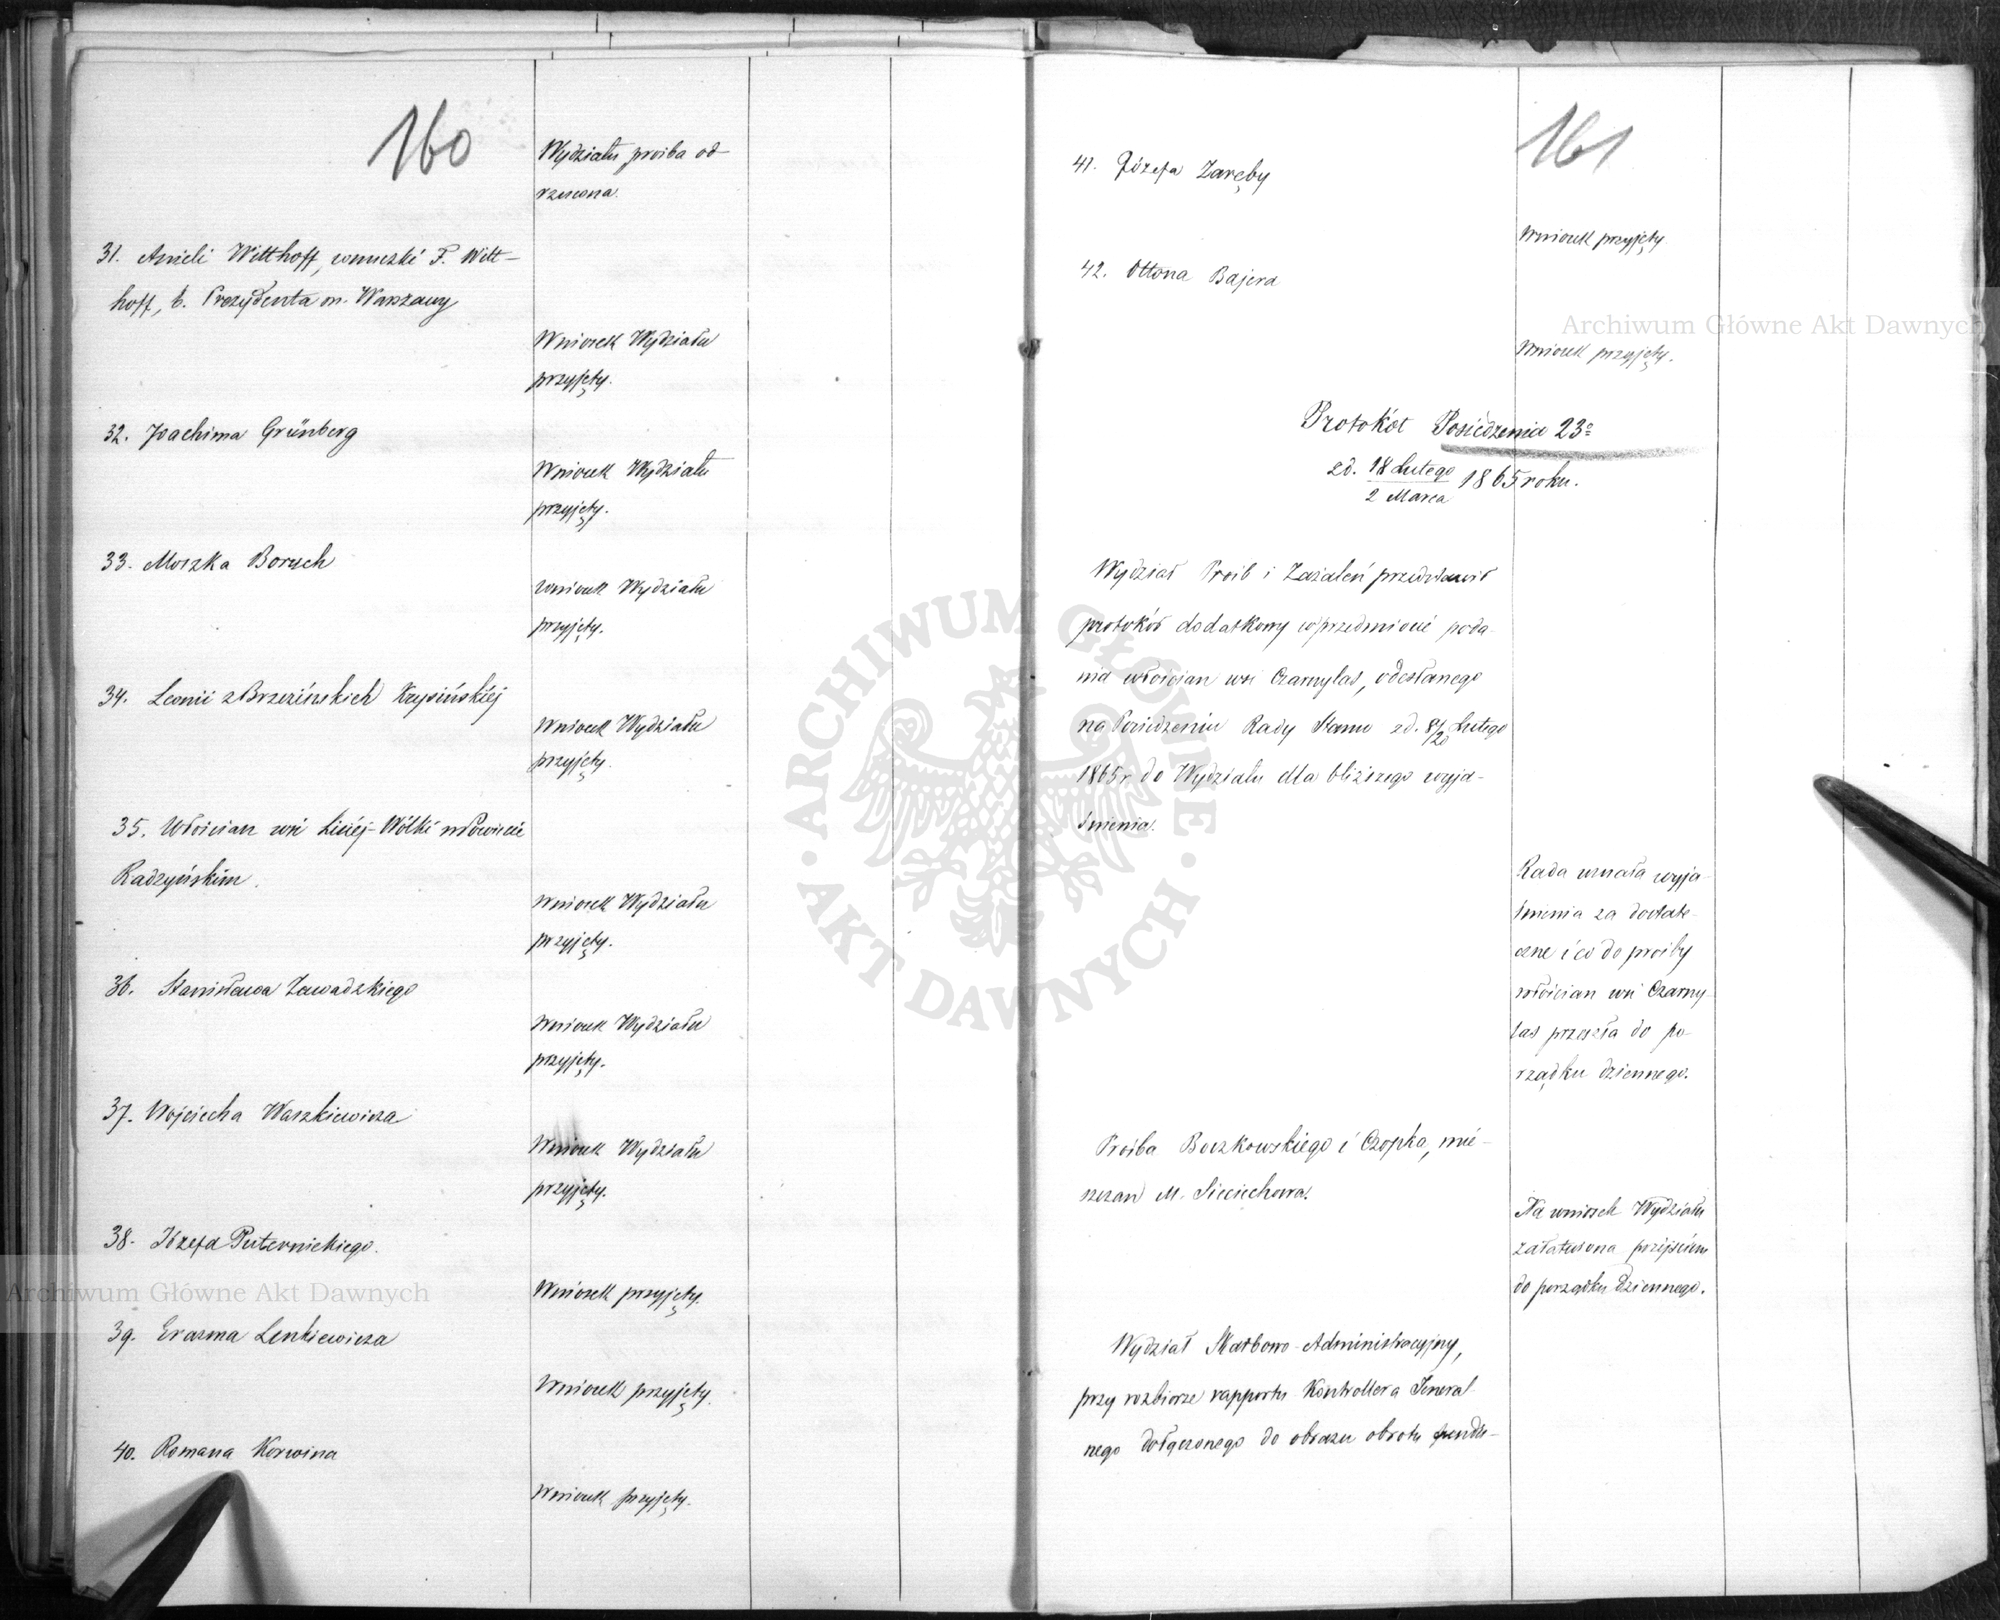 160
Wydziału prośba od-
rzucona.
31. Anieli Witthoff, wnuczki F. Witt-
hoff, b. Prezydenta m. Warszawy
Wniosek Wydziału
przyjęty.
32. Joachima Grünberg
Wniosek Wydziału
przyjęty.
33. Moszka Boruch
wniosek Wydziału
przyjęty.
34. Leonii z Brzezińskich Krysińskiej
Wniosek Wydziału
przyjęty.
35. Włościan wsi Lisiej-Wólki w Powiecie
Radzyńskim.
Wniosek Wydziału
przyjęty.
36. Stanisława Zawadzkiego
Wniosek Wydziału
przyjęty.
37. Wojciecha Waszkiewicza
Wniosek Wydziału
przyjęty.
38. Józefa Puternickiego.
Wniosek przyjęty.
39. Erazma Lenkiewicza
Wniosek przyjęty.
40. Romana Korwina
Wniosek przyjęty.
161
41. Józefa Zaręby
Wniosek przyjęty.
42. Ottona Bajera
Wniosek przyjęty.
Protokół Posiedzenia 23º
zd. 18 Lutego / 2 Marca 1865 roku.
Wydział Próśb i Zażaleń przedstawił
protokół dodatkowy w przedmiocie poda-
nia włościan wsi Czarnylas, odesłanego
na Posiedzeniu Rady Stanu zd. 8/20 Lutego
1865 r. do Wydziału dla bliższego wyja-
śnienia.
Rada uznała wyja-
śnienia za dostate-
czne i co do prośby
włościan wsi Czarny-
las przeszła do po-
rządku dziennego.
Prośba Boczkowskiego i Czopka, mie-
szczan M. Sieciechowa.
Na wniosek Wydziału
załatwiona przejściem
do porządku dziennego.
Wydział Skarbowo-Administracyjny,
przy rozbiorze rapportu Kontrollera Jeneral-
nego dołączonego do obrazu obrotu fundu-
Archiwum Główne Akt Dawnych
ARCHIWUM GŁÓWNE
· AKT DAWNYCH ·
Archiwum Główne Akt Dawnych